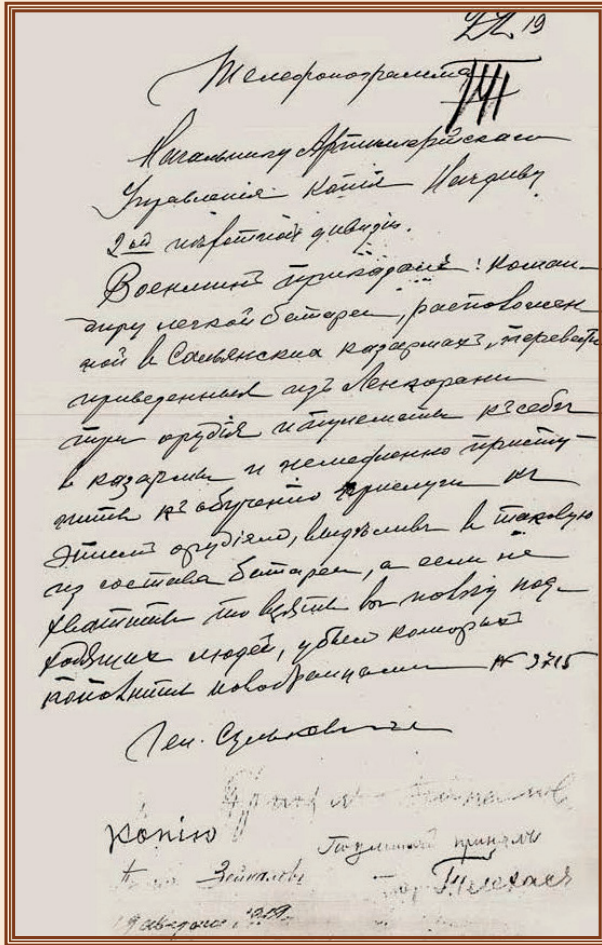 19
Телефонограмма
Начальнику Артиллерійскаго
Управленія. Копія Начдиву
2ой пѣхотной дивизіи.
Военминъ приказалъ: коман-
диру легкой батареи, расположен
ной в Сальянских казармахъ, перевезти
приведенныя изъ Ленкорани
три орудія и пулеметы къ себѣ
в казармы и немедленно присту-
пить къ обученію прислуги къ
этимъ орудіямъ, выдѣливъ в таковую
из состава батареи, а если не
хватитъ то взять
ходящих людей, убыль которыхъ
пополнить новобранцами № 3715
Ген. Сулькевичъ
Копію
Подлинный принялъ
Зейналовъ
августа 1919